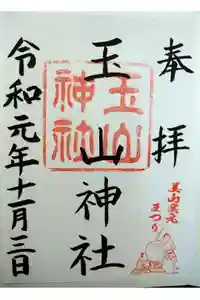 奉拝
玉山神社
玉山神社
令和元年十一月三日
美山窯元
まつり